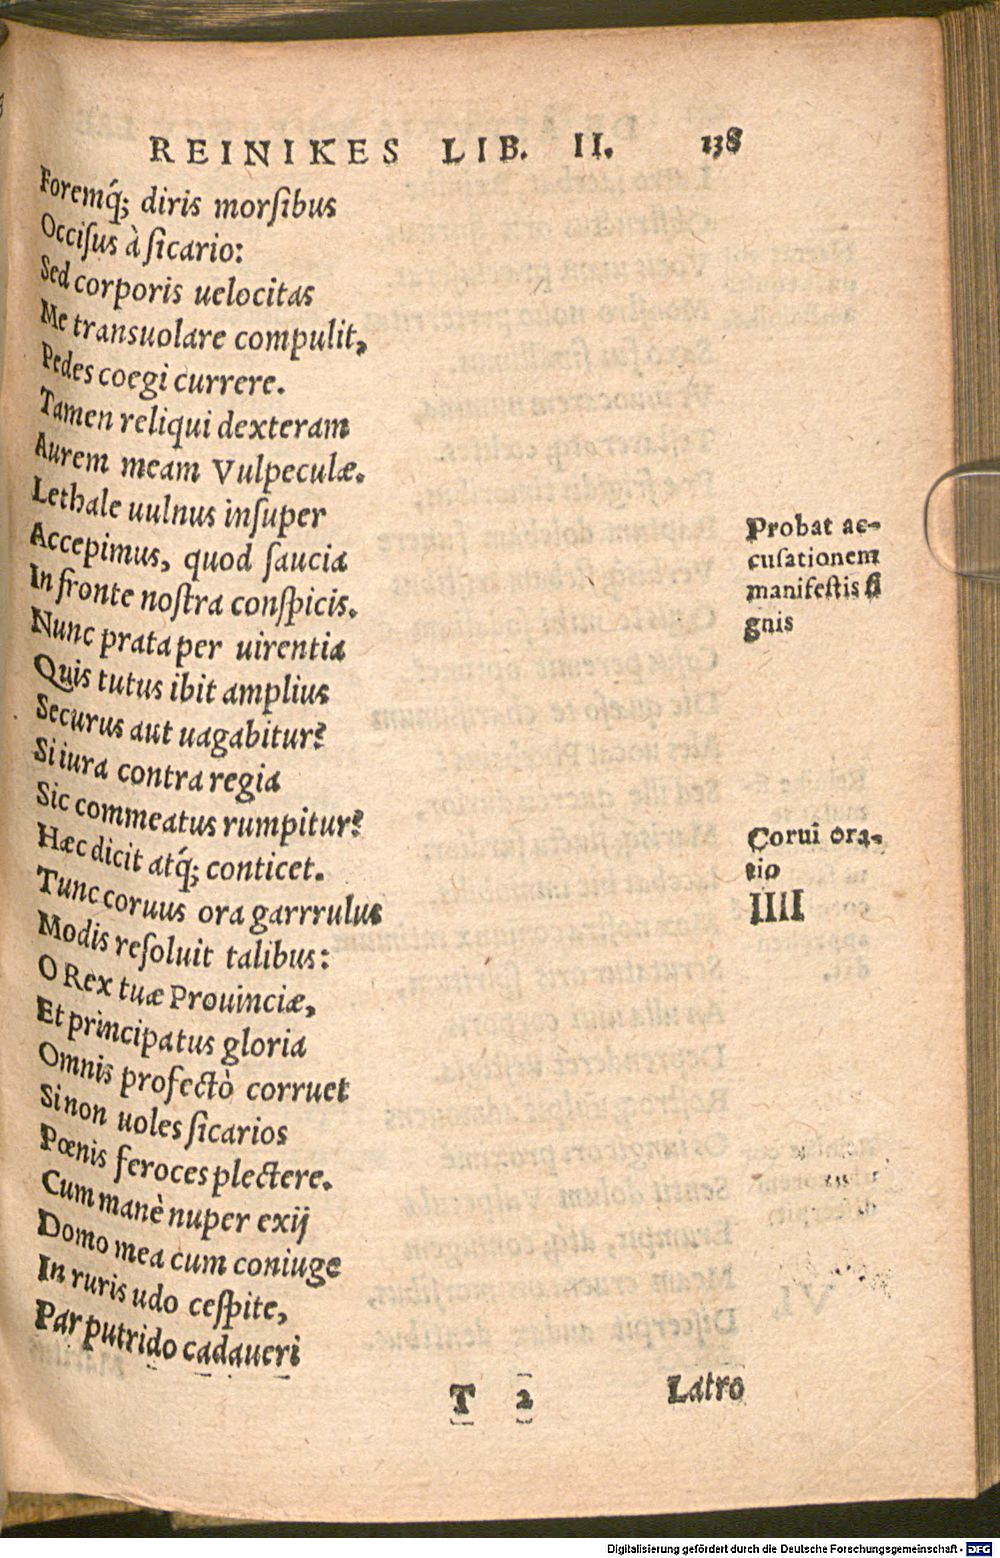 REINIKES LIB. II. 138
Foremq́; diris morſibus
Occiſus à ſicario:
Sed corporis uelocitas
Me transuolare compulit,
Pedes coegi currere.
Tamen reliqui dexteram
Aurem meam Vulpeculæ.
Lethale uulnus inſuper
Accepimus, quod ſaucia
In fronte noſtra conſpicis.
Probat ac-
cuſationem
manifeſtis ſi
gnis
Nunc prata per uirentia
Quis tutus ibit amplius
Securus aut uagabitur?
Si iura contra regia
Sic commeatus rumpitur?
Hæc dicit atq́; conticet.
Tunc coruus ora garrrulus
Corui ora-
tio
IIII
Modis reſoluit talibus:
O Rex tuæ Prouinciæ,
Et principatus gloria
Omnis profectò corruet
Si non uoles ſicarios
Pœnis feroces plectere.
Cum manè nuper exij
Domo mea cum coniuge
In ruris udo ceſpite,
Par putrido cadaueri
T 2 Latro
Digitalisierung gefördert durch die Deutsche Forschungsgemeinschaft - DFG